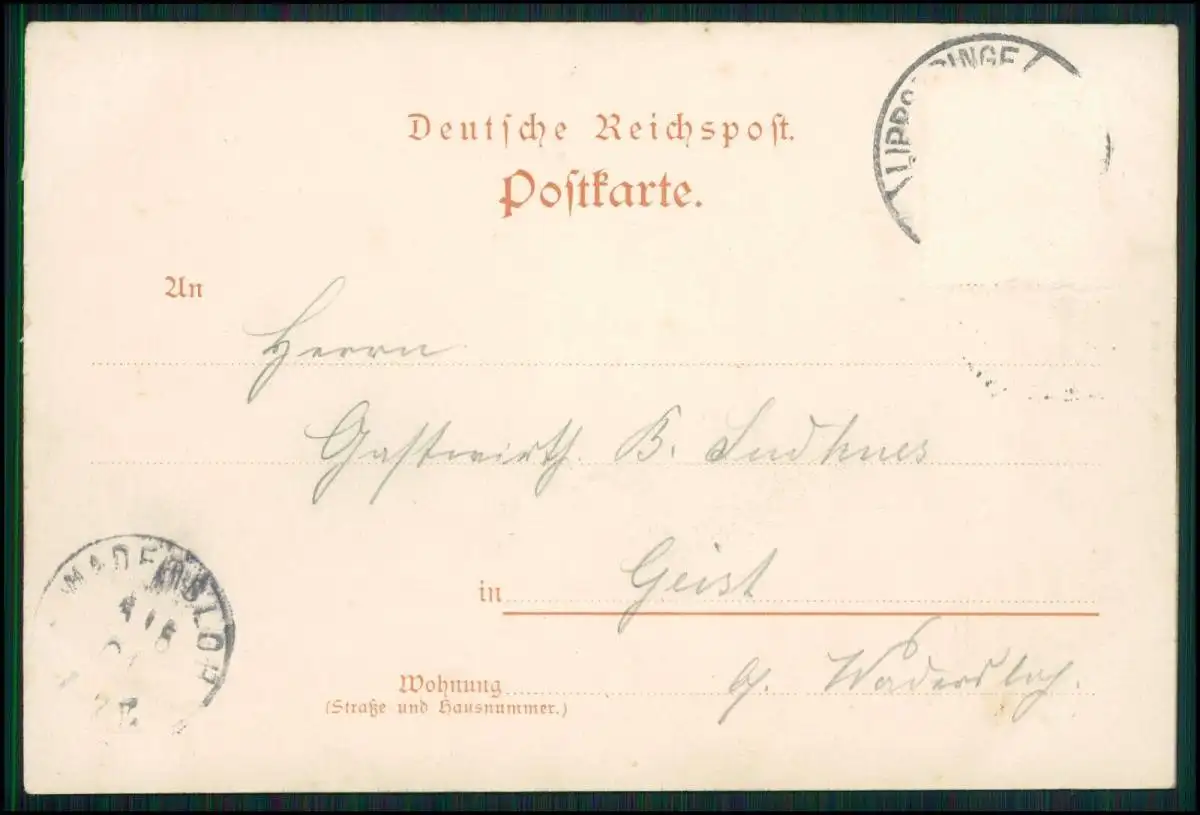 Deutsche Reichspost.
Postkarte.
LIPPS RINGE
An
Herrn
Gastwirth. B.
in Geist
Wohnung
(Straße und Hausnummer.)
Wadersloh.
WADERSLOH
4/6